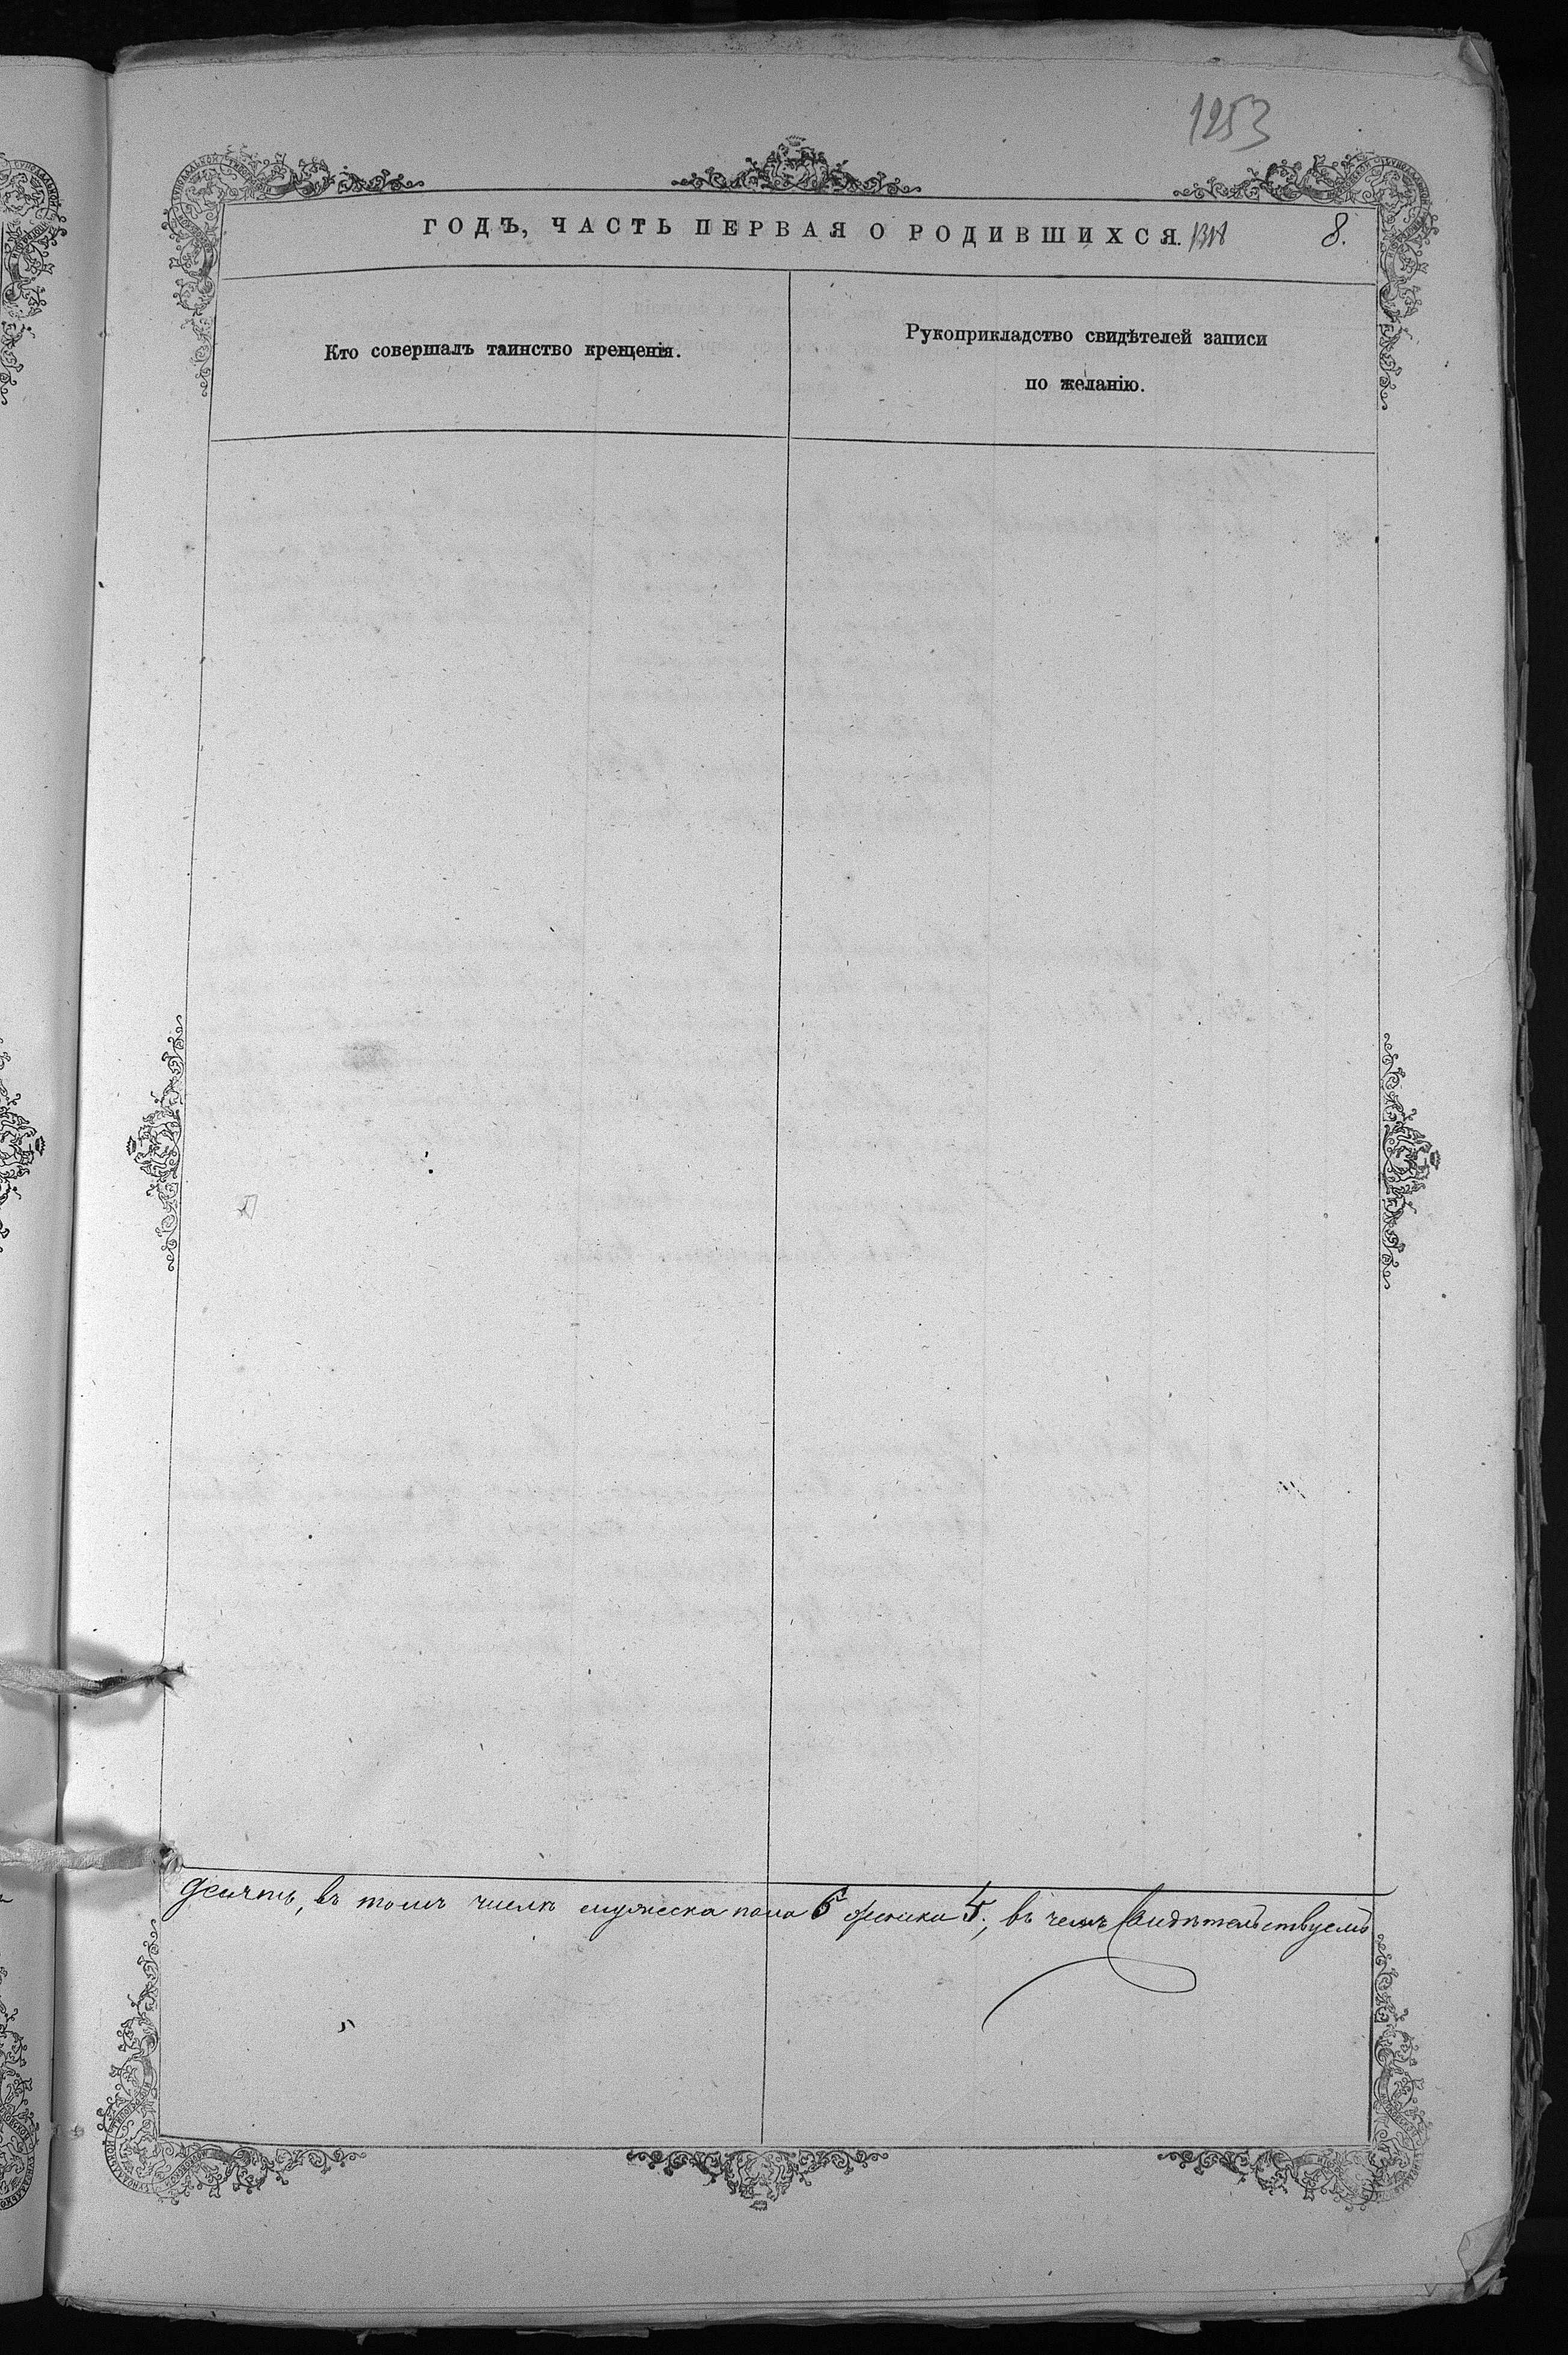 1253
ГОДЪ, ЧАСТЬ ПЕРВАЯ О РОДИВШИХСЯ. 8.
Кто совершалъ таинство крещенія.
Рукоприкладство свидѣтелей записи
по желанію.
десять, въ томъ числѣ мужеска пола 6 женска 4, въ чемъ свидѣтельствуемъ